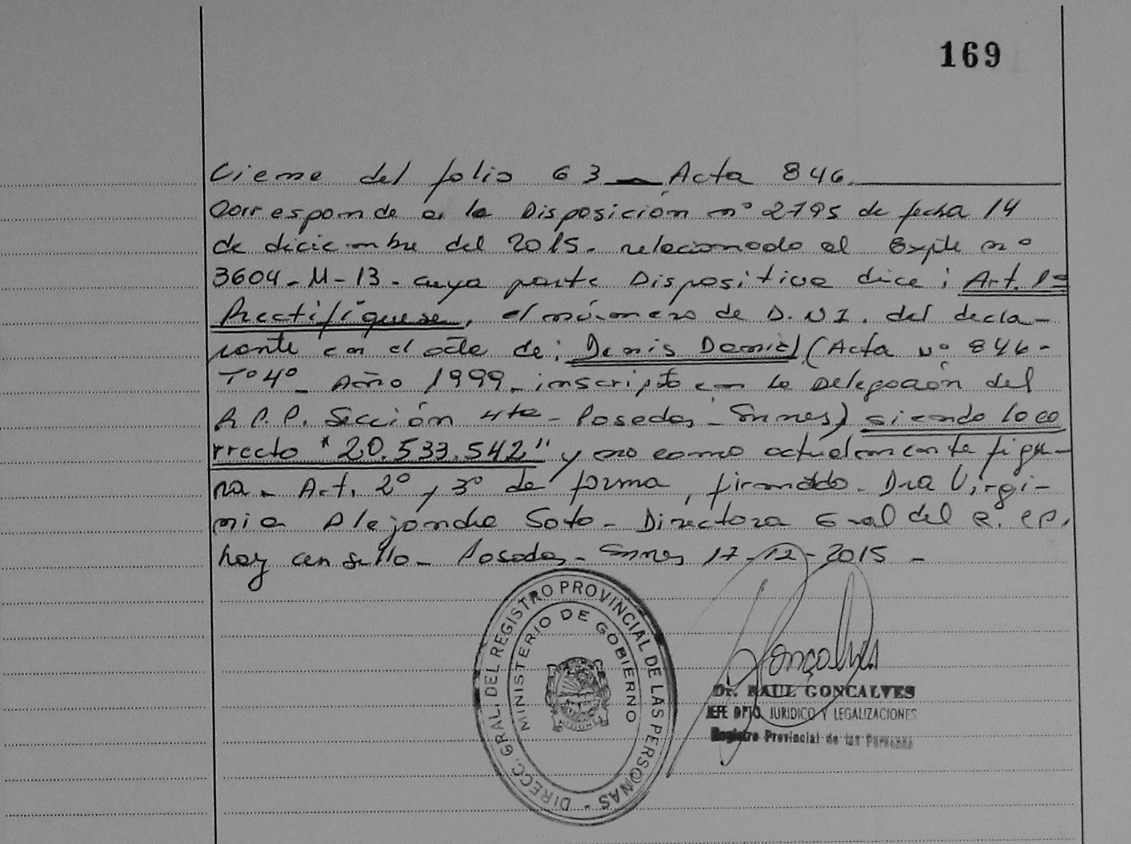 169
Viene del folio 63 — Acta 846.
Corresponde a la Disposición nº 2795 de fecha 14
de diciembre del 2015. relacionado al Expte nº
3604-M-13. cuya parte Dispositiva dice: Art. 1º
Rectifíquese, el número de D.N.I. del decla-
rante en el acta de: Denis Daniel (Acta nº 846-
Tº4º Año 1999. inscripto en la Delegación del
R.P.P. Sección 4ta - Posadas - Mnes) siendo lo co
rrecto "20.533.542" y no como actualmente figu-
ra. Art. 2º y 3º de forma, firmado. Dra Virgi-
nia Alejandra Soto - Directora Gral del R. PP.
hay un sello. Posadas - Mnes 17-12-2015 -
DIRECC. GRAL. DEL REGISTRO PROVINCIAL DE LAS PERSONAS -
MINISTERIO DE GOBIERNO
Gonçalves
Dr. RAUL GONCALVES
JEFE DPTO. JURIDICO Y LEGALIZACIONES
Registro Provincial de las Personas